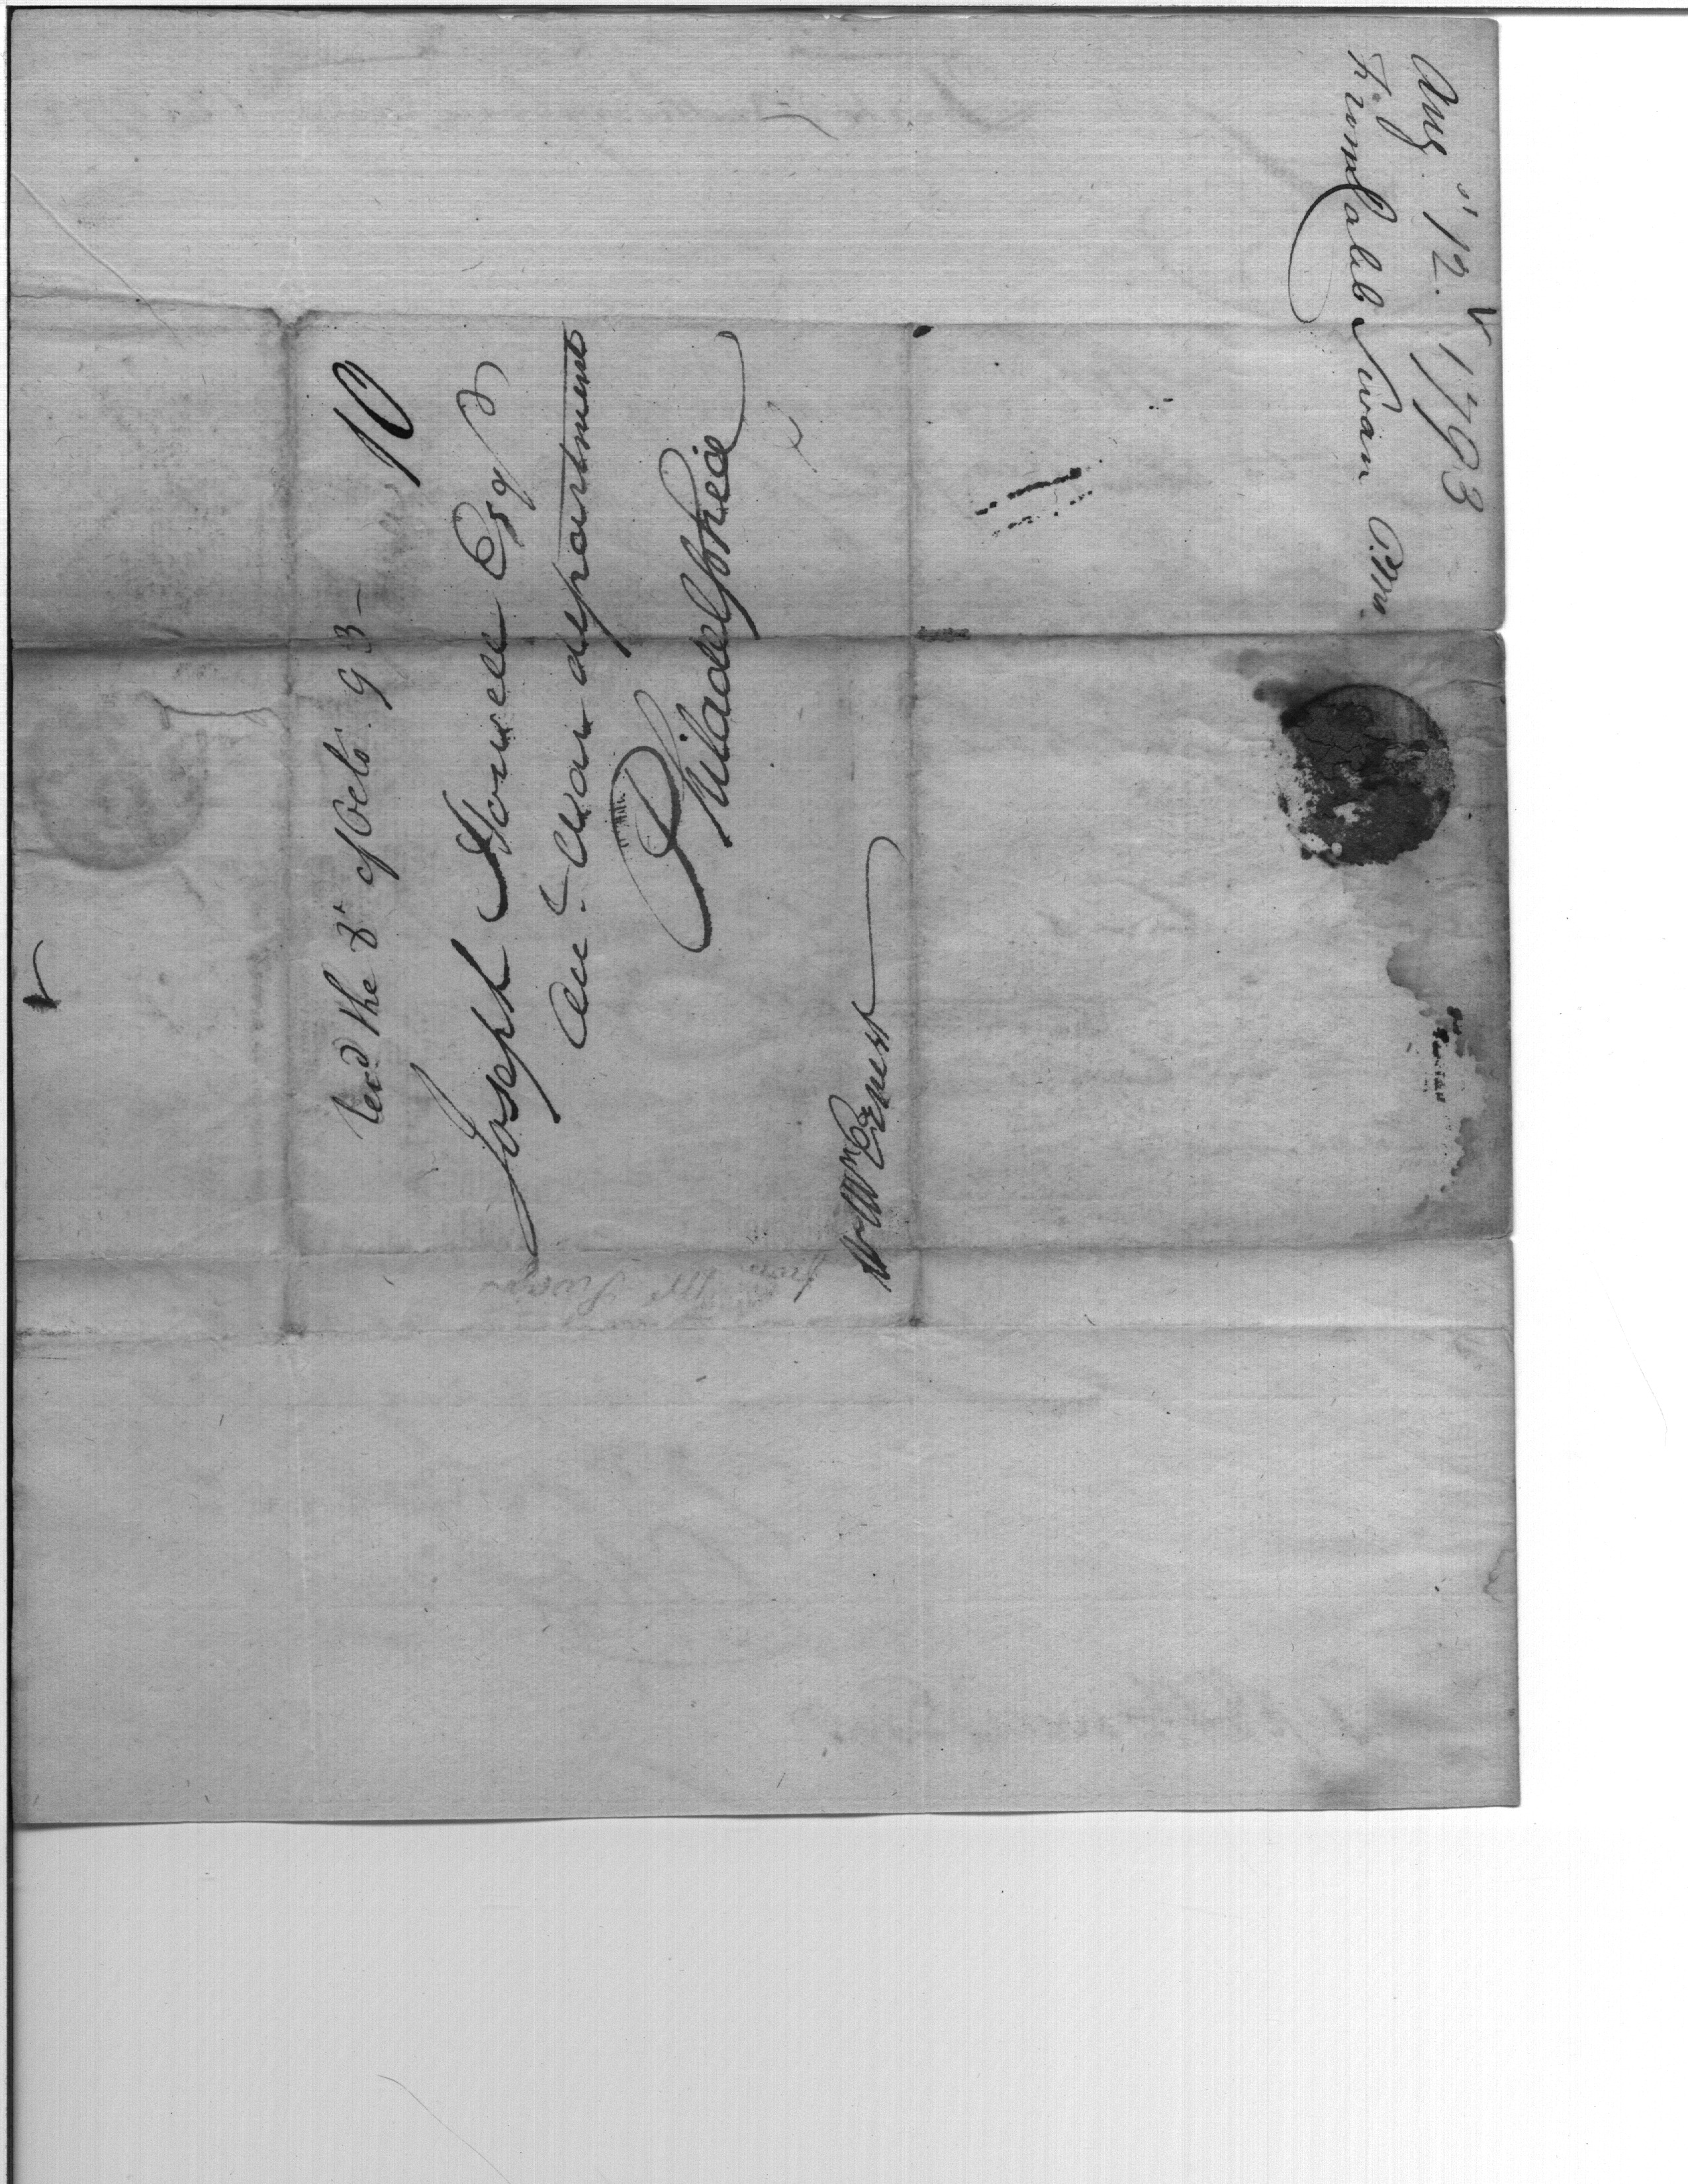 Augst 12. 1793
From Caleb Swan P.M.
10
recd the 8th of Octo. 93 –
Joseph Howell Esqr
Acct. War department
Philadelphia
from Mr Swan